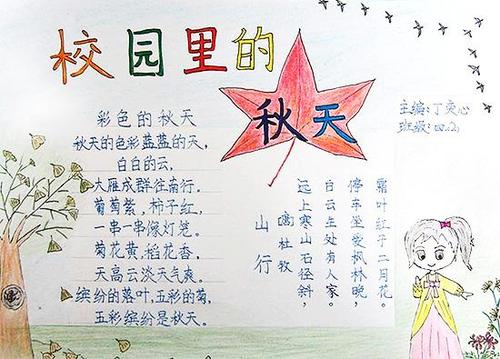 校园里的
秋天
主编:丁奕心
班级:
彩色的秋天
秋天的色彩蓝蓝的天,
白白的云,
大雁成群往南行。
葡萄紫,柿子红,
一串一串像灯笼。
菊花黄,稻花香,
天高云淡天气爽。
缤纷的落叶,五彩的菊,
五彩缤纷是秋天。
山行
杜牧
远上寒山石径斜,
白云生处有人家。
停车坐爱枫林晚,
霜叶红于二月花。